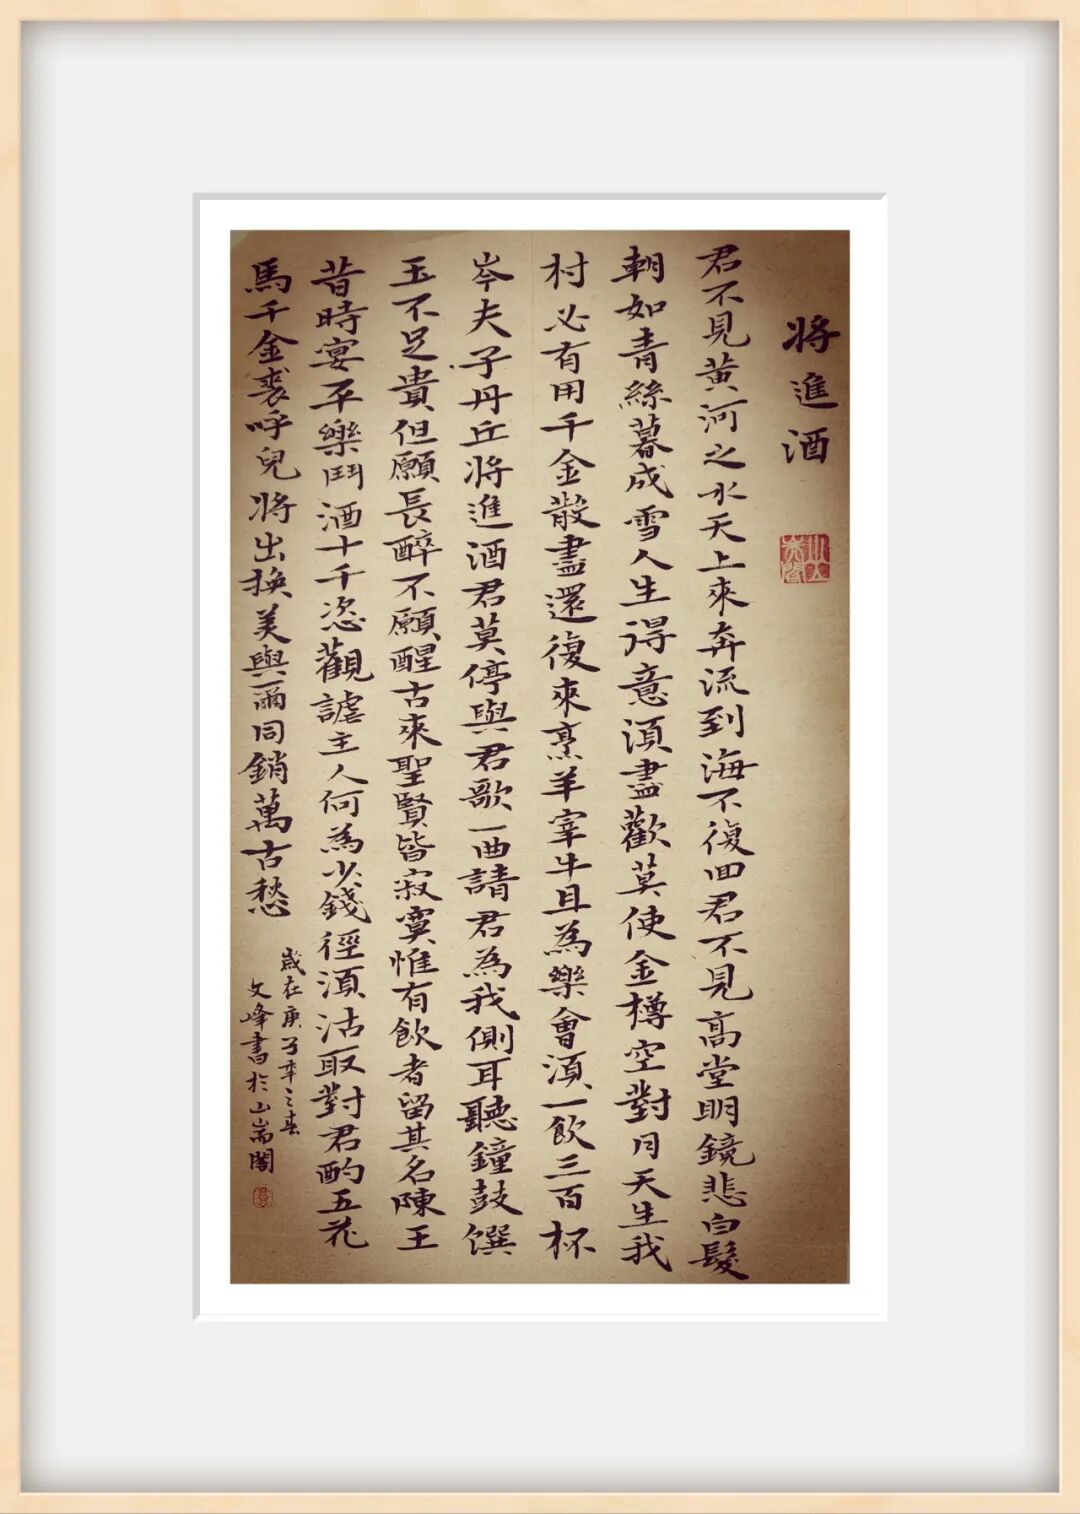 將進酒
君不見黃河之水天上來奔流到海不復回君不見高堂明鏡悲白髮
朝如青絲暮成雪人生得意須盡歡莫使金樽空對月天生我
村必有用千金散盡還復來烹羊宰牛且為樂會須一飲三百杯
岑夫子丹丘將進酒君莫停與君歌一曲請君為我側耳聽鐘鼓饌
玉不足貴但願長醉不願醒古來聖賢皆寂寞惟有飲者留其名陳王
昔時宴平樂鬥酒十千恣觀謔主人何為少錢徑須沽取對君酌五花
馬千金裘呼兒將出換美與爾同銷萬古愁
歲在庚子年之春
文峰書於山耑閣